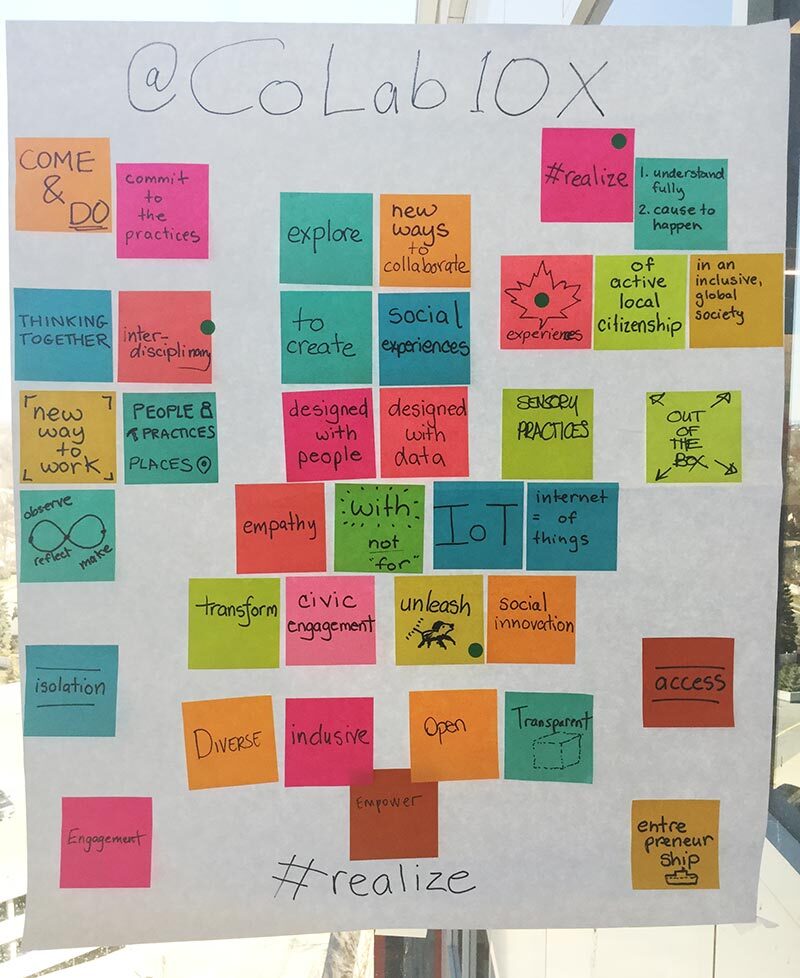 @CoLab10X
COME
&
DO
commit
to
the
practices
explore
new
ways
to
collaborate
#realize
1. understand
fully
2. cause to
happen
THINKING
TOGETHER
inter-
disciplinary
to
create
social
experiences
experiences
of
active
local
citizenship
in an
inclusive,
global
society
new
way
to
work
PEOPLE
PRACTICES
PLACES
designed
with
people
designed
with
data
SENSORY
PRACTICES
OUT
OF
THE
BOX
observe
reflect
make
empathy
with
not
"for"
IoT
internet
= of
things
transform
civic
engagement
unleash
social
innovation
isolation
access
DIVERSE
inclusive
Open
Transparent
EMPOWER
Engagement
entre
preneur
ship
#realize